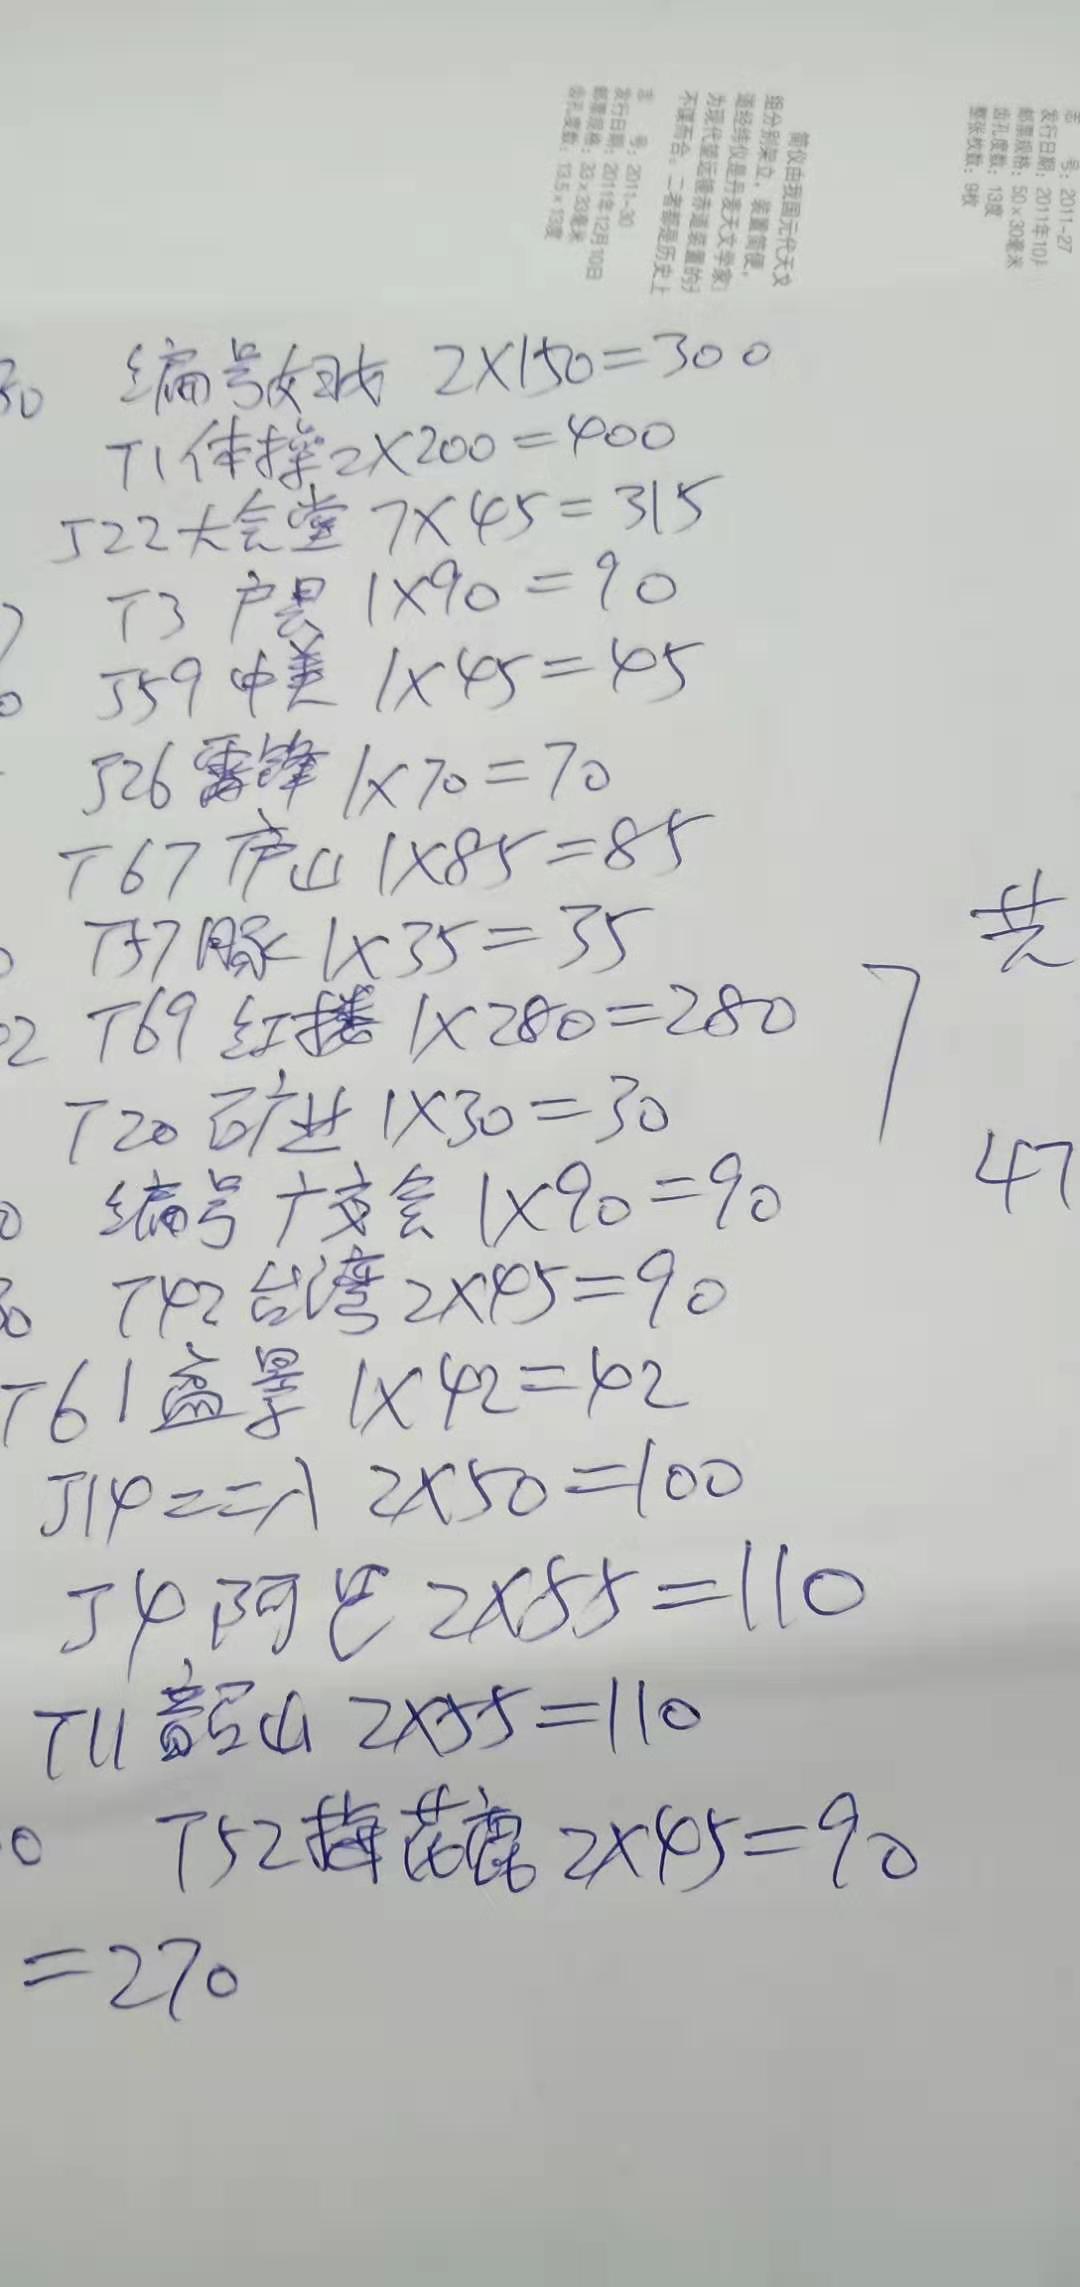 简仪由我国元代天文
组分别架立,装置简便,
道经纬仪是丹麦天文学家
为现代望远镜赤道装置的
不谋而合。二者都是历史上
志 号:2011-30
发行日期:2011年12月10日
邮票规格:33×33毫米
齿孔度数:13.5×13度
志 号:2011-27
发行日期:2011年10
邮票规格:50×30毫米
齿孔度数:13度
整张枚数:9枚
30 编号 2X150=300
T1体操2X200=400
J22大会堂 7X45=315
T3 户县 1X90=90
J59中美 1X45=45
J26雷锋 1X70=70
T67庐山 1X85=85
T37豚 1X35=35
02 T69红楼 1X280=280
共
T20矿进 1X30=30
47
0 编号十交会 1X90=90
30 T42台湾 2X45=90
T61盆景 1X42=42
J14二二八 2X50=100
J4阿巴 2X55=110
T11韶山 2X55=110
0 T52梅花鹿 2X45=90
=270